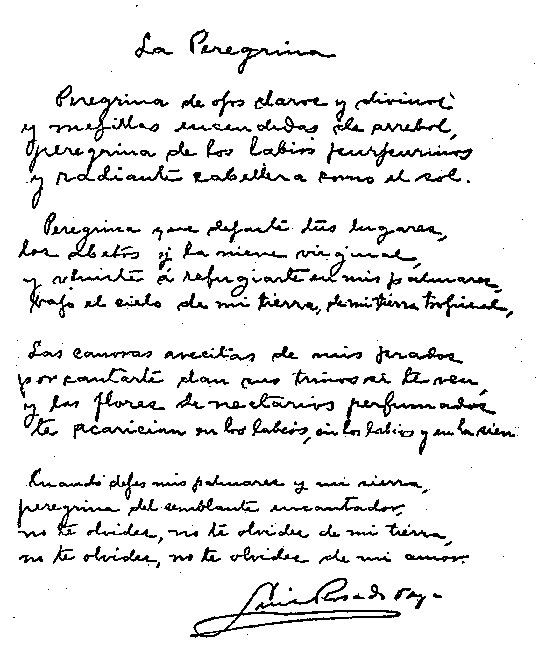 La Peregrina
Peregrina de ojos claros y divinos
y mejillas encendidas de arrebol,
peregrina de los labios purpurinos
y radiante cabellera como el sol.
Peregrina que dejaste tus lugares,
los abetos y la nieve virginal,
y viniste á refugiarte en mis palmares,
bajo el cielo de mi tierra, de mi tierra tropical,
Las canoras avecitas de mis prados
por cantarte dan sus trinos si te ven,
y las flores de nectarios perfumados
te acarician en los labios, en los labios y en la sien
Cuando dejes mis palmares y mi sierra,
peregrina del semblante encantador,
no te olvides, no te olvides de mi tierra,
no te olvides, no te olvides de mi amor.
Luis Rosado Vega